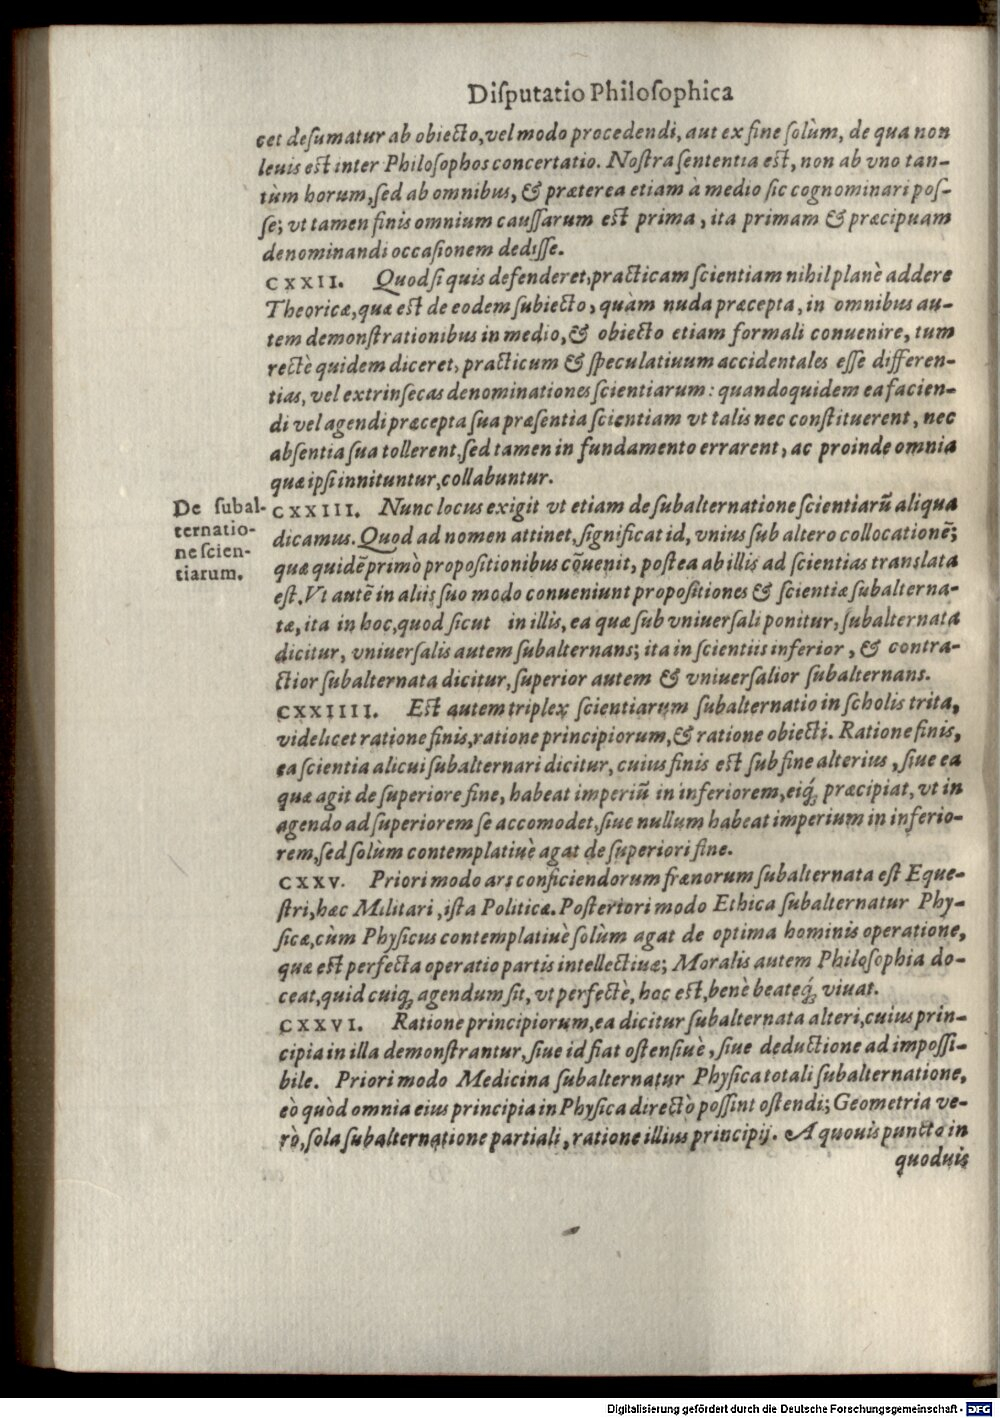 Diſputatio Philoſophica
cet deſumatur ab obiecto, vel modo procedendi, aut ex fine ſolùm, de qua non
leuis est inter Philoſophos concertatio. Noſtra ſententia est, non ab vno tan-
tùm horum, ſed ab omnibus, & præterea etiam à medio ſic cognominari poſ-
ſe; vt tamen finis omnium cauſſarum est prima, ita primam & præcipuam
denominandi occaſionem dediſſe.
CXXII. Quod ſi quis defenderet, practicam ſcientiam nihil planè addere
Theoricæ, quæ est de eodem ſubiecto, quàm nuda præcepta, in omnibus au-
tem demonſtrationibus in medio, & obiecto etiam formali conuenire, tum
rectè quidem diceret, practicum & ſpeculatiuum accidentales eſſe differen-
tias, vel extrinſecas denominationes ſcientiarum: quandoquidem ea facien-
di vel agendi præcepta ſua præſentia ſcientiam vt talis nec conſtituerent, nec
abſentia ſua tollerent, ſed tamen in fundamento errarent, ac proinde omnia
quæ ipſi innituntur, collabuntur.
De ſubal-
ternatio-
ne ſcien-
tiarum.
CXXIII. Nunc locus exigit vt etiam de ſubalternatione ſcientiarū aliqua
dicamus. Quod ad nomen attinet, ſignificat id, vnius ſub altero collocationē;
quæ quidē primò propoſitionibus cōuenit, poſtea ab illis ad ſcientias translata
est. Vt autē in aliis ſuo modo conueniunt propoſitiones & ſcientiæ ſubalterna-
tæ, ita in hoc, quod ſicut in illis, ea quæ ſub vniuerſali ponitur, ſubalternata
dicitur, vniuerſalis autem ſubalternans; ita in ſcientiis inferior, & contra-
ctior ſubalternata dicitur, ſuperior autem & vniuerſalior ſubalternans.
CXXIIII. Est autem triplex ſcientiarum ſubalternatio in ſcholis trita,
videlicet ratione finis, ratione principiorum, & ratione obiecti. Ratione finis,
ea ſcientia alicui ſubalternari dicitur, cuius finis est ſub fine alterius, ſiue ea
quæ agit de ſuperiore fine, habeat imperiū in inferiorem, eiq́; præcipiat, vt in
agendo ad ſuperiorem ſe accomodet, ſiue nullum habeat imperium in inferio-
rem, ſed ſolùm contemplatiuè agat de ſuperiori fine.
CXXV. Priori modo ars conficiendorum frænorum ſubalternata est Eque-
ſtri, hæc Militari, iſta Politicæ. Poſteriori modo Ethica ſubalternatur Phy-
ſicæ, cùm Phyſicus contemplatiuè ſolùm agat de optima hominis operatione,
quæ est perfecta operatio partis intellectiuæ; Moralis autem Philoſophia do-
ceat, quid cuiq; agendum ſit, vt perfectè, hoc est, benè beateq́; viuat.
CXXVI. Ratione principiorum, ea dicitur ſubalternata alteri, cuius prin-
cipia in illa demonſtrantur, ſiue id fiat oſtenſiuè, ſiue deductione ad impoſſi-
bile. Priori modo Medicina ſubalternatur Phyſica totali ſubalternatione,
eò quòd omnia eius principia in Phyſica directò poſſint oſtendi; Geometria ve-
rò, ſola ſubalternatione partiali, ratione illius principij. A quouis puncto in
quoduis
Digitalisierung gefördert durch die Deutsche Forschungsgemeinschaft - DFG